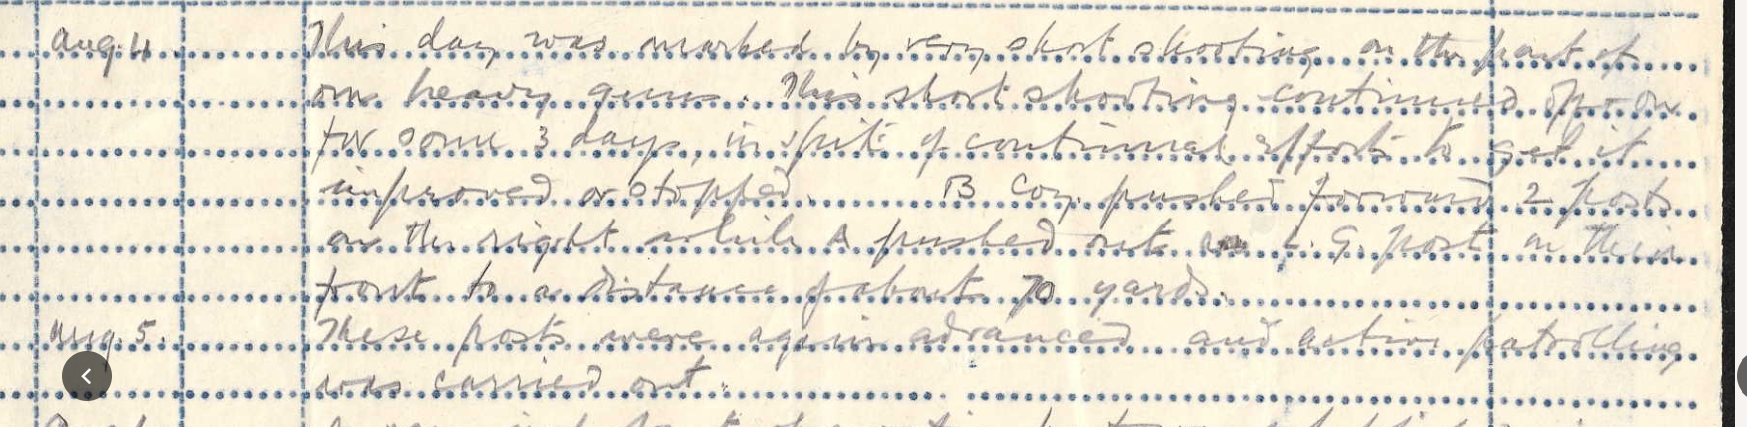 Aug. 4. This day was marked by very short shooting on the part of
our heavy guns. This short shooting continued off & on
for some 3 days, in spite of continual efforts to get it
improved or stopped. B Coy. pushed forward 2 posts
on the right while A pushed out an L. G. post on their
front to a distance of about 70 yards.
Aug. 5. These posts were again advanced and active patrolling
was carried out.